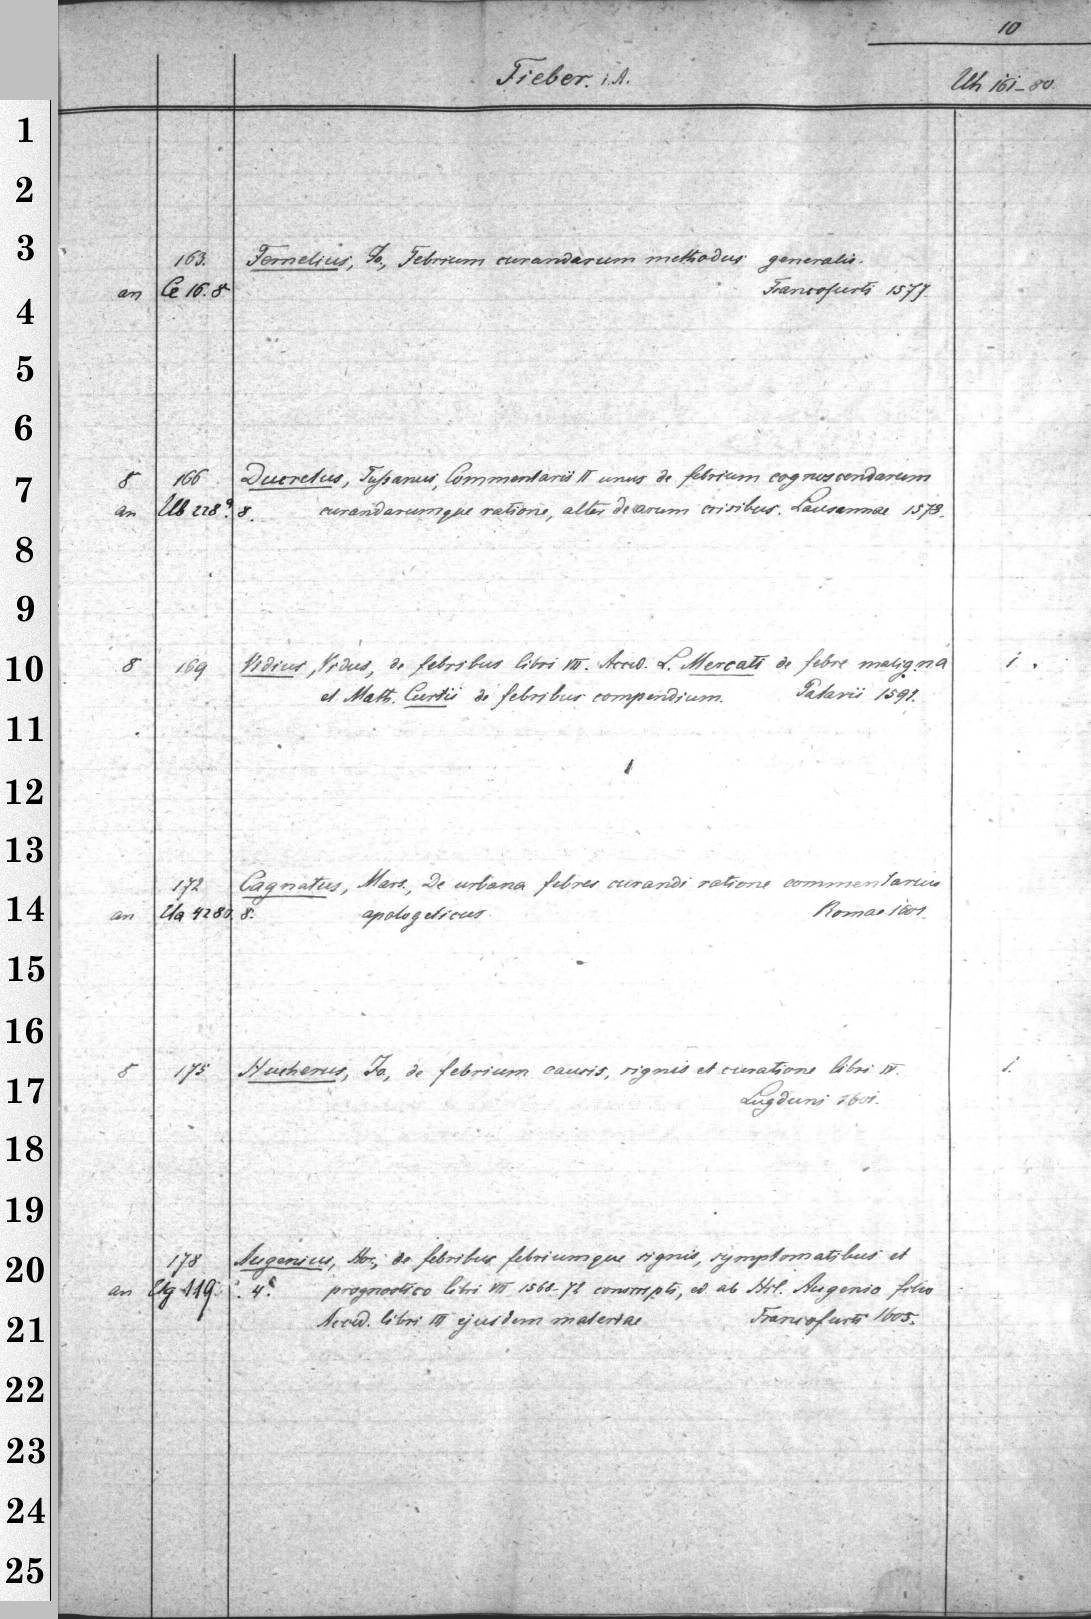 10
Fieber. i. A.
Uh 161-80.
1
2
3
163. Fernelius, Jo., Febrium curandarum methodus generalis.
an Ce 16. 8 Francofurti 1577.
4
5
6
8 166 Ducretus, Tussanus, Commentarii II unus de febrium cognoscendarum
7
an Ub 228a. 8. curandarumque ratione, alter de earum crisibus. Lausannae 1578.
8
9
10
8 169 Vidius, Vidus, de febribus libri VII. Acced. L. Mercati de febre maligna i.
et Math. Curtii de febribus compendium. Patavii 1591.
11
12
13
172 Cagnatus, Mars., De urbana febres curandi ratione commentarius
14
an Ua 4280. 8. apologeticus. Romae 1601.
15
16
8 175 Hucherus, Jo., de febrium causis, signis et curatione libri IV. i.
17
Lugduni 1601.
18
19
178 Augenius, Hor., de febribus febriumque signis, symptomatibus et
20
an Ug 119. 4°. prognostico libri VII 1568-72 conscripti, ed. ab Hil. Augenio filio
21
Acced. libri III ejusdem materiae Francofurti 1605.
22
23
24
25